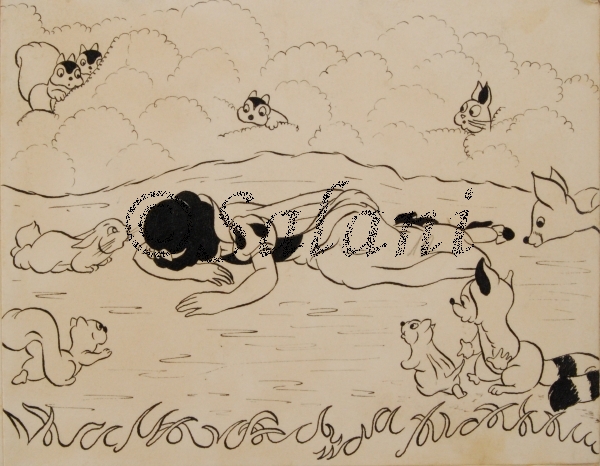 © Salani